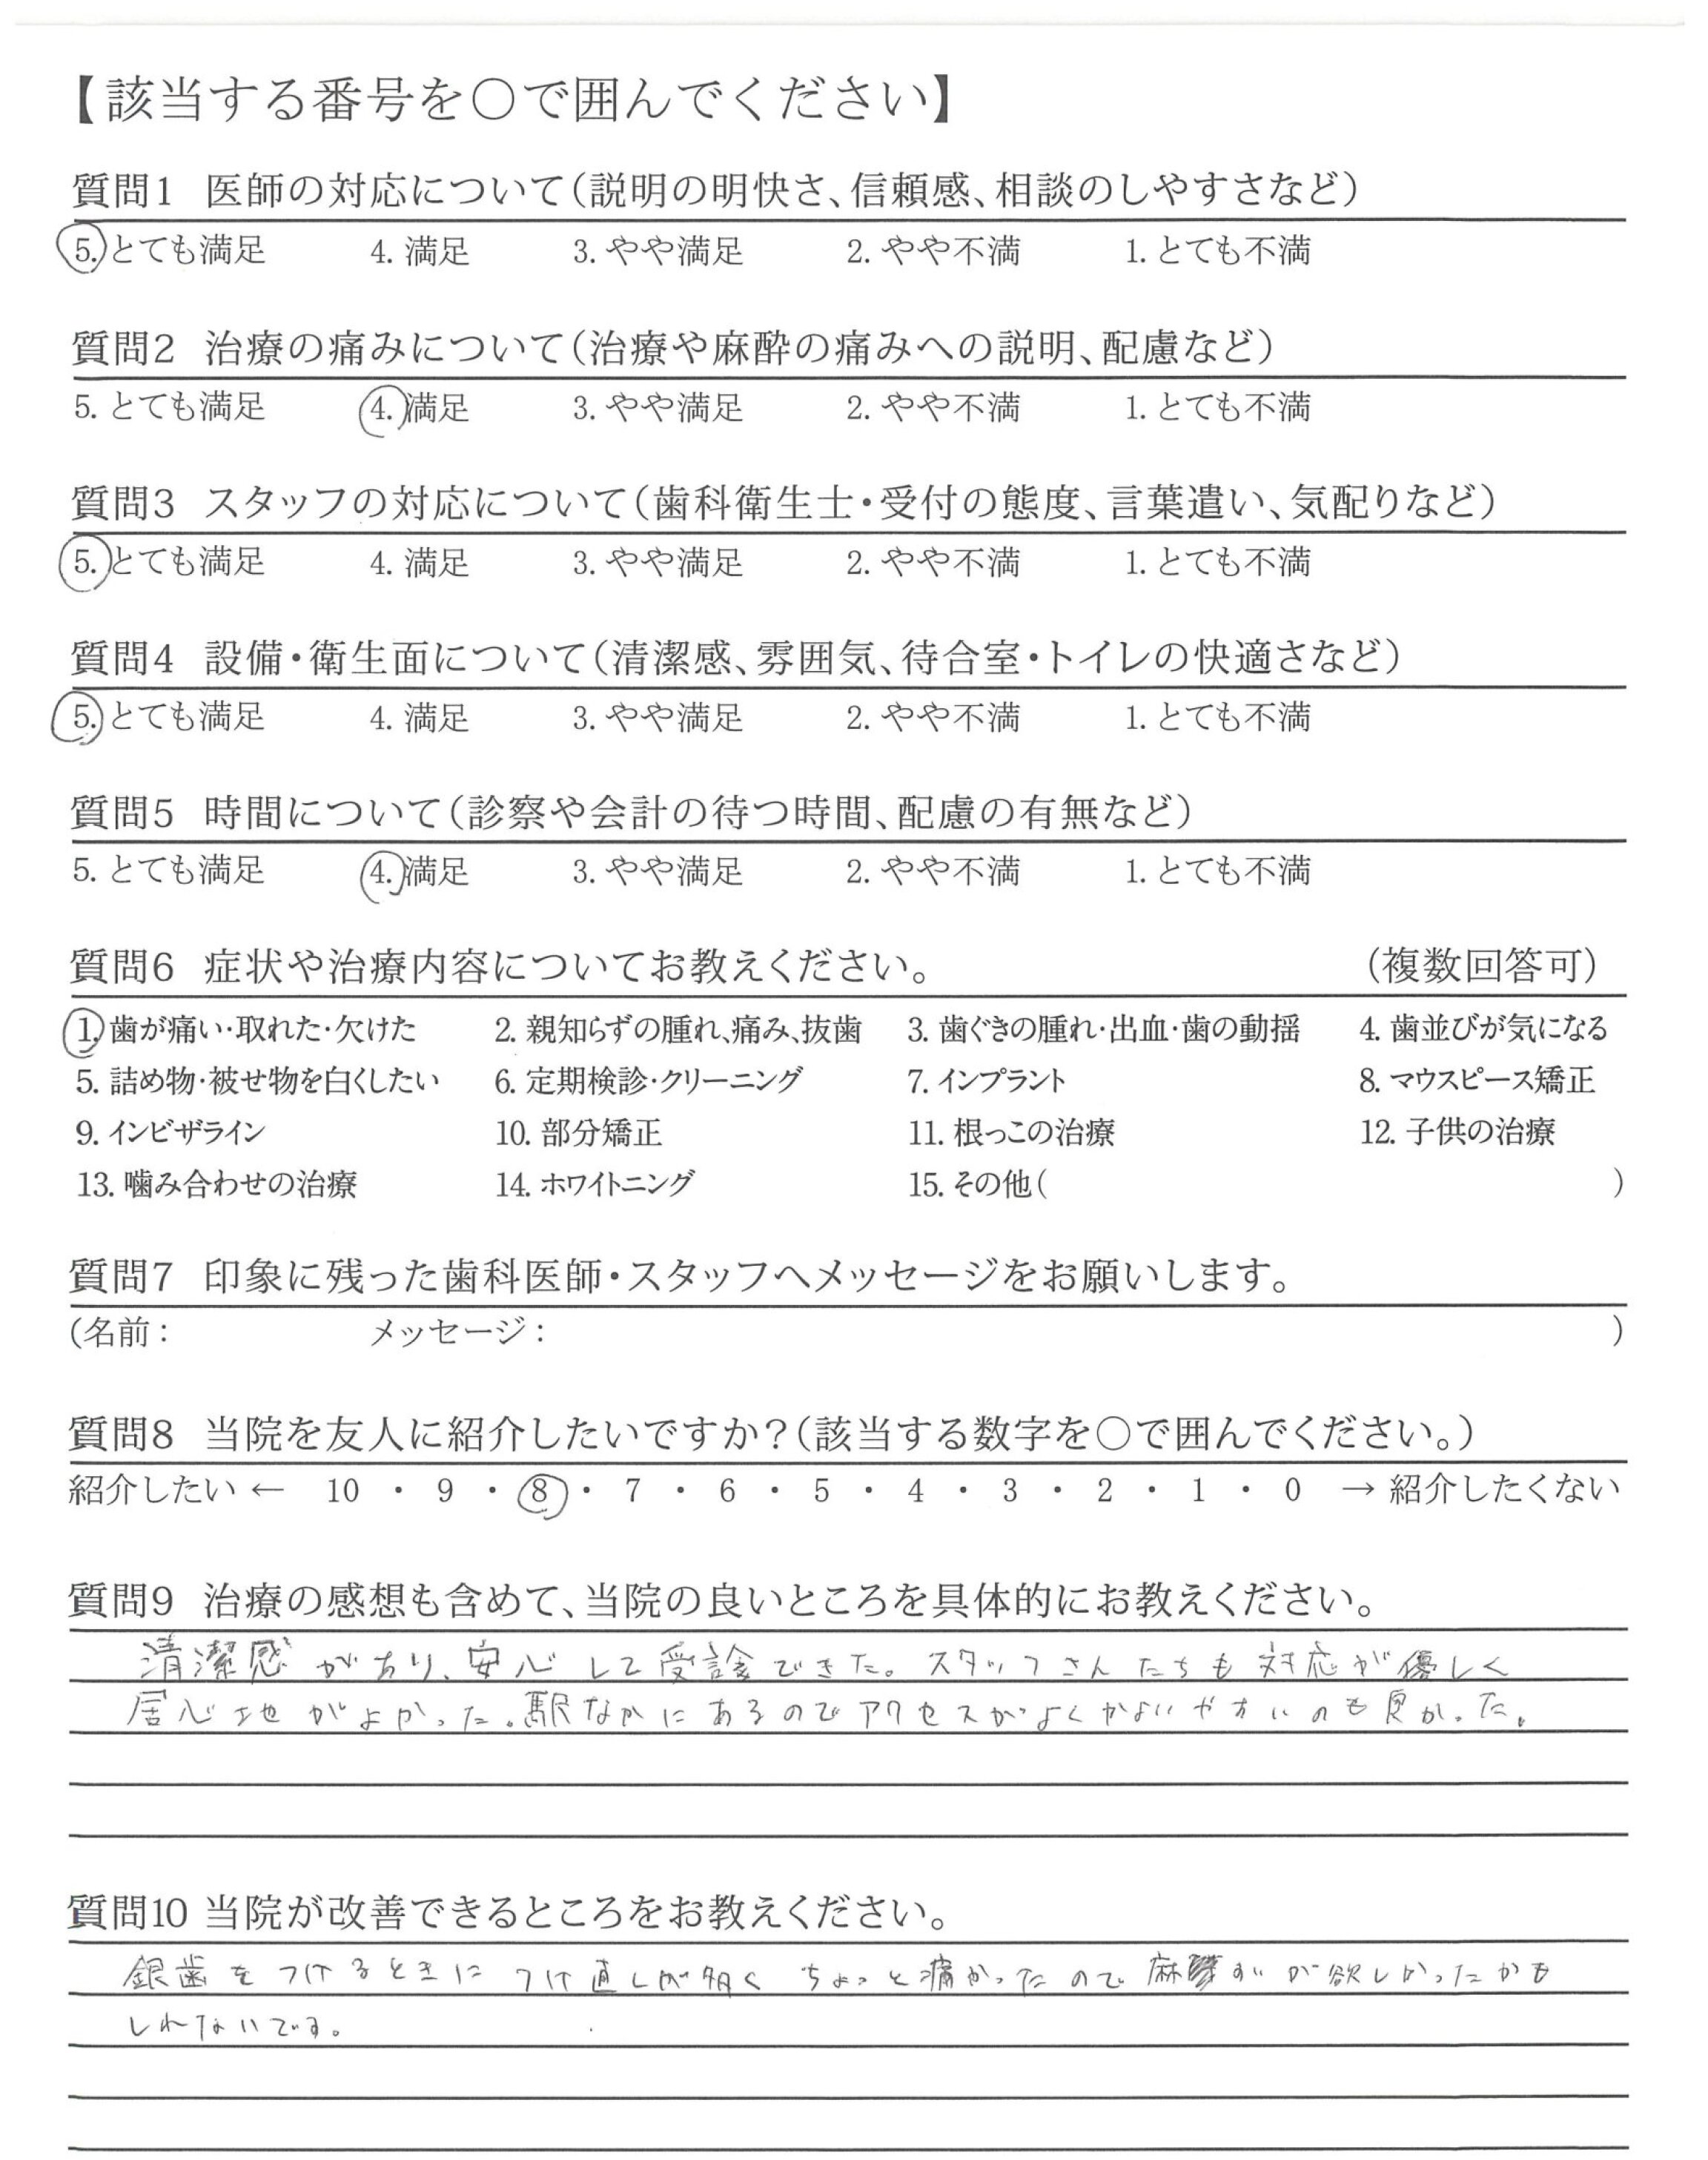 【該当する番号を〇で囲んでください】
質問1 医師の対応について(説明の明快さ、信頼感、相談のしやすさなど)
5. とても満足 4. 満足 3. やや満足 2. やや不満 1. とても不満
質問2 治療の痛みについて(治療や麻酔の痛みへの説明、配慮など)
5. とても満足 4. 満足 3. やや満足 2. やや不満 1. とても不満
質問3 スタッフの対応について(歯科衛生士・受付の態度、言葉遣い、気配りなど)
5. とても満足 4. 満足 3. やや満足 2. やや不満 1. とても不満
質問4 設備・衛生面について(清潔感、雰囲気、待合室・トイレの快適さなど)
5. とても満足 4. 満足 3. やや満足 2. やや不満 1. とても不満
質問5 時間について(診察や会計の待つ時間、配慮の有無など)
5. とても満足 4. 満足 3. やや満足 2. やや不満 1. とても不満
質問6 症状や治療内容についてお教えください。 (複数回答可)
1. 歯が痛い・取れた・欠けた 2. 親知らずの腫れ、痛み、抜歯 3. 歯ぐきの腫れ・出血・歯の動揺 4. 歯並びが気になる
5. 詰め物・被せ物を白くしたい 6. 定期検診・クリーニング 7. インプラント 8. マウスピース矯正
9. インビザライン 10. 部分矯正 11. 根っこの治療 12. 子供の治療
13. 噛み合わせの治療 14. ホワイトニング 15. その他( )
質問7 印象に残った歯科医師・スタッフへメッセージをお願いします。
(名前: メッセージ: )
質問8 当院を友人に紹介したいですか?(該当する数字を〇で囲んでください。)
紹介したい ← 10 ・ 9 ・ 8 ・ 7 ・ 6 ・ 5 ・ 4 ・ 3 ・ 2 ・ 1 ・ 0 → 紹介したくない
質問9 治療の感想も含めて、当院の良いところを具体的にお教えください。
清潔感があり、安心して受診できた。スタッフさんたちも対応が優しく
居心地がよかった。駅なかにあるのでアクセスがよくかよいやすいのも良かった。
質問10 当院が改善できるところをお教えください。
銀歯をつけるときにつけ直しが多く ちょっと痛かったので 麻 が欲しかったかも
しれないです。